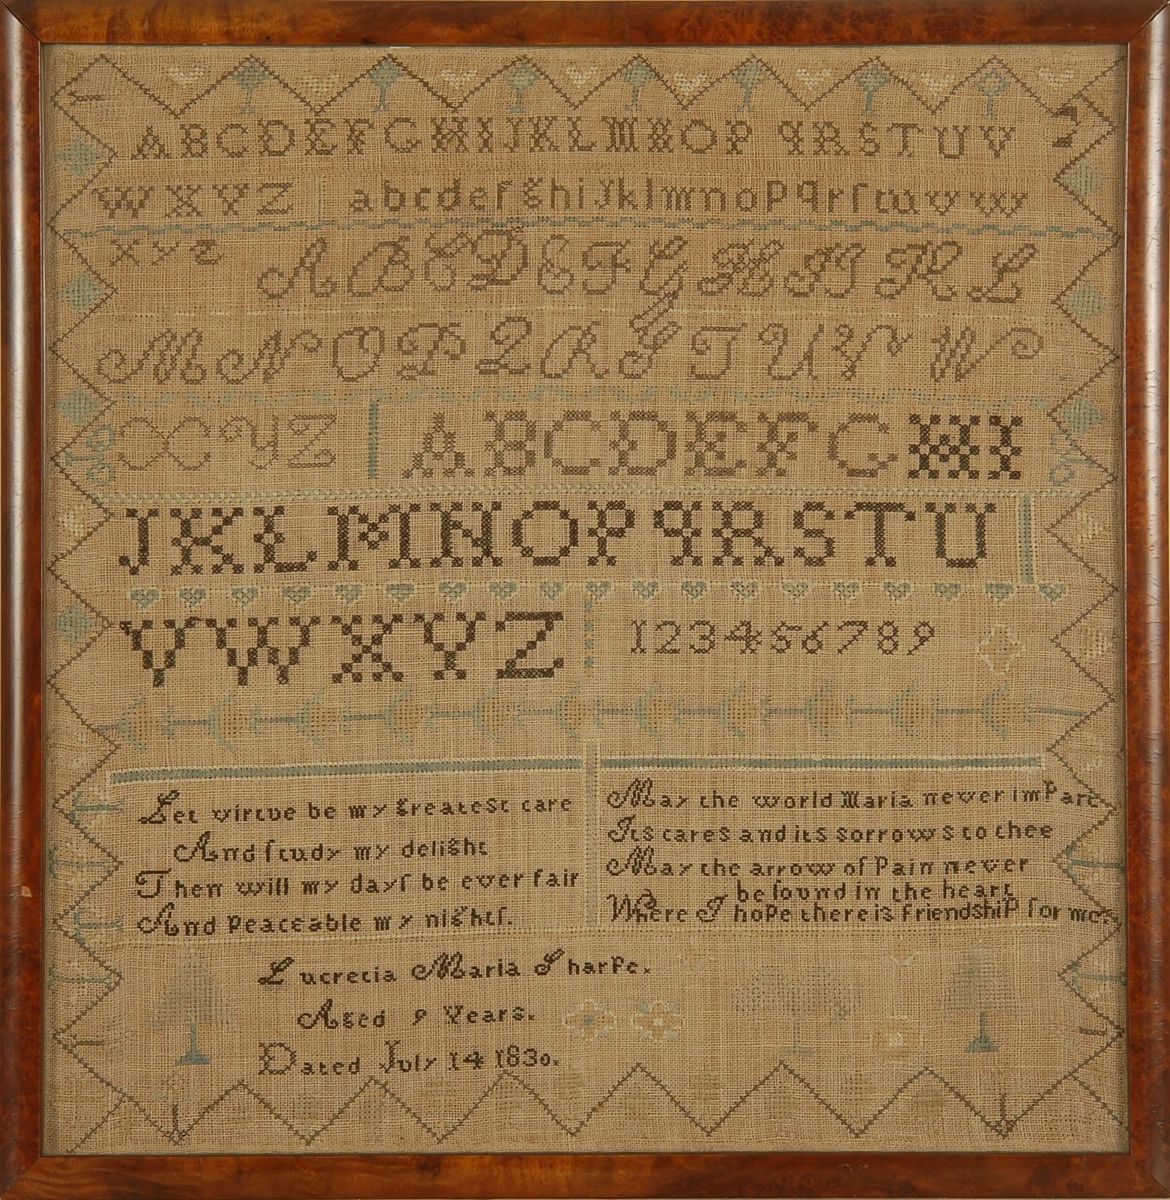 ABCDEFGHIJKLMNOPQRSTUV
WXYZ abcdefghijklmnopqrſtuvw
xyz ABCDEFGHIJKL
MNOPQRSTUVW
XYZ ABCDEFGHI
JKLMNOPQRSTU
VWXYZ 123456789
Let virtue be my greatest care
And ſtudy my delight
Then will my dayſ be ever fair
And Peaceable my nightſ.
May the world Maria never imPart
Its cares and its sorrows to thee
May the arrow of Pain never
be found in the heart
Where I hoPe there is friendshiP for me.
Lucretia Maria Sharpe.
Aged 9 Years.
Dated July 14 1830.